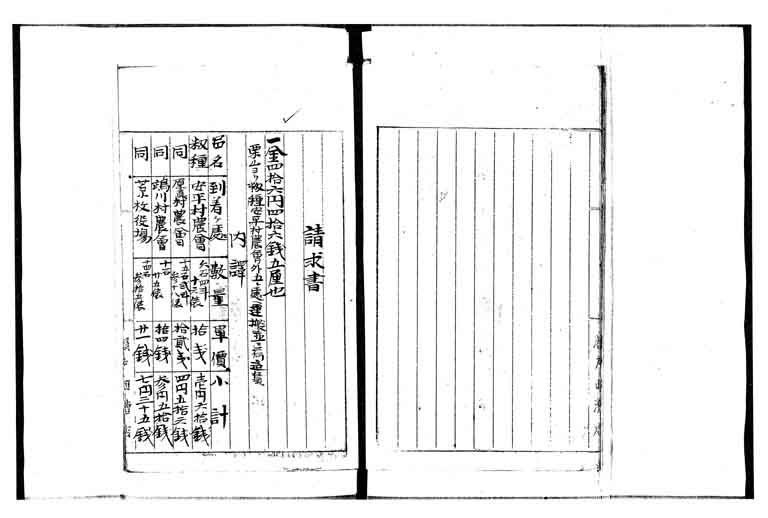 請求書
一金四拾六円四拾六銭五厘也
栗山ヨリ籾種安平村農會外五ヶ處運搬並ニ荷造費
内譯
品名 到着ヶ處 數量 單價 小計
籾種 安平村農會 六石四斗 十六俵 拾戋 壱円六拾銭
同 厚真村農會 十五石弐斗 参十八俵 拾貳戋 四円五拾六銭
同 鵡川村農會 十石 廿五俵 拾四銭 参円五拾銭
同 苫牧役場 十四石 参拾五俵 廿一銭 七円三十五銭